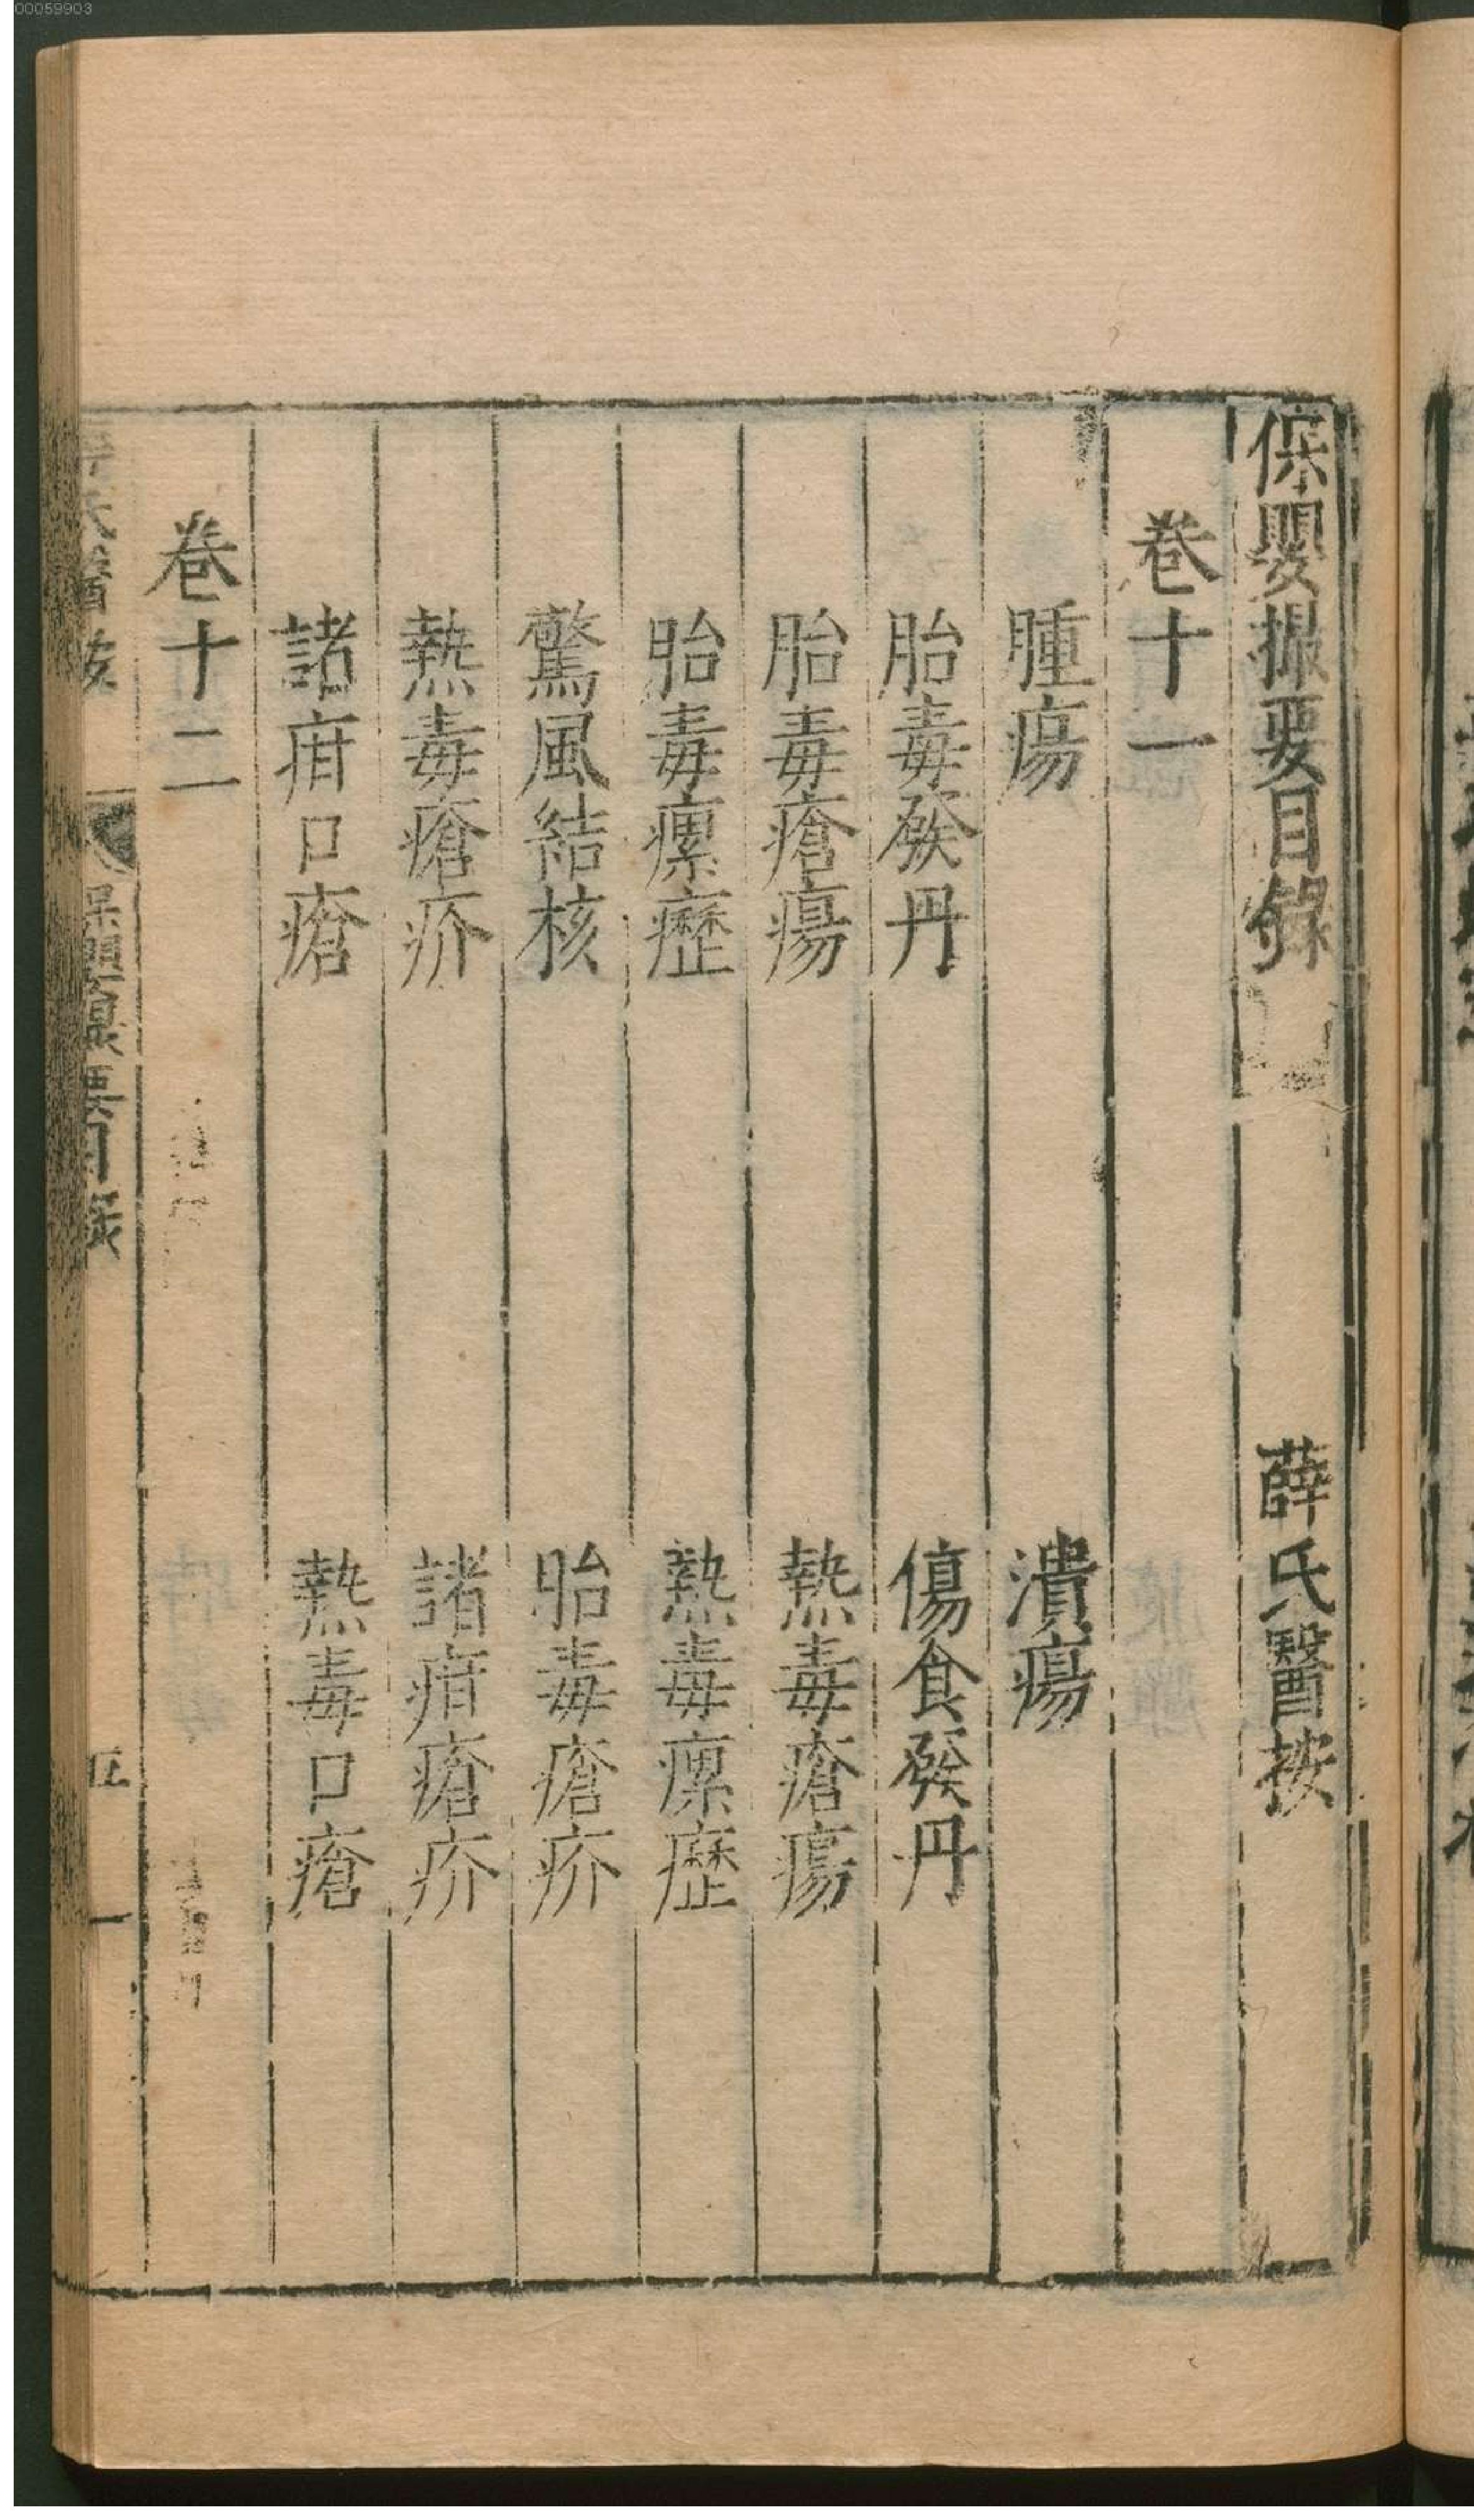 00059903
保嬰撮要目錄　薛氏醫按
卷十一
腫瘍　潰瘍
胎毒發丹　傷食發丹
胎毒瘡瘍　熱毒瘡瘍
胎毒瘰癧　熱毒瘰癧
驚風結核　胎毒瘡疥
熱毒瘡疥　諸疳瘡疥
諸疳口瘡　熱毒口瘡
卷十二
保嬰撮要目錄　五　一